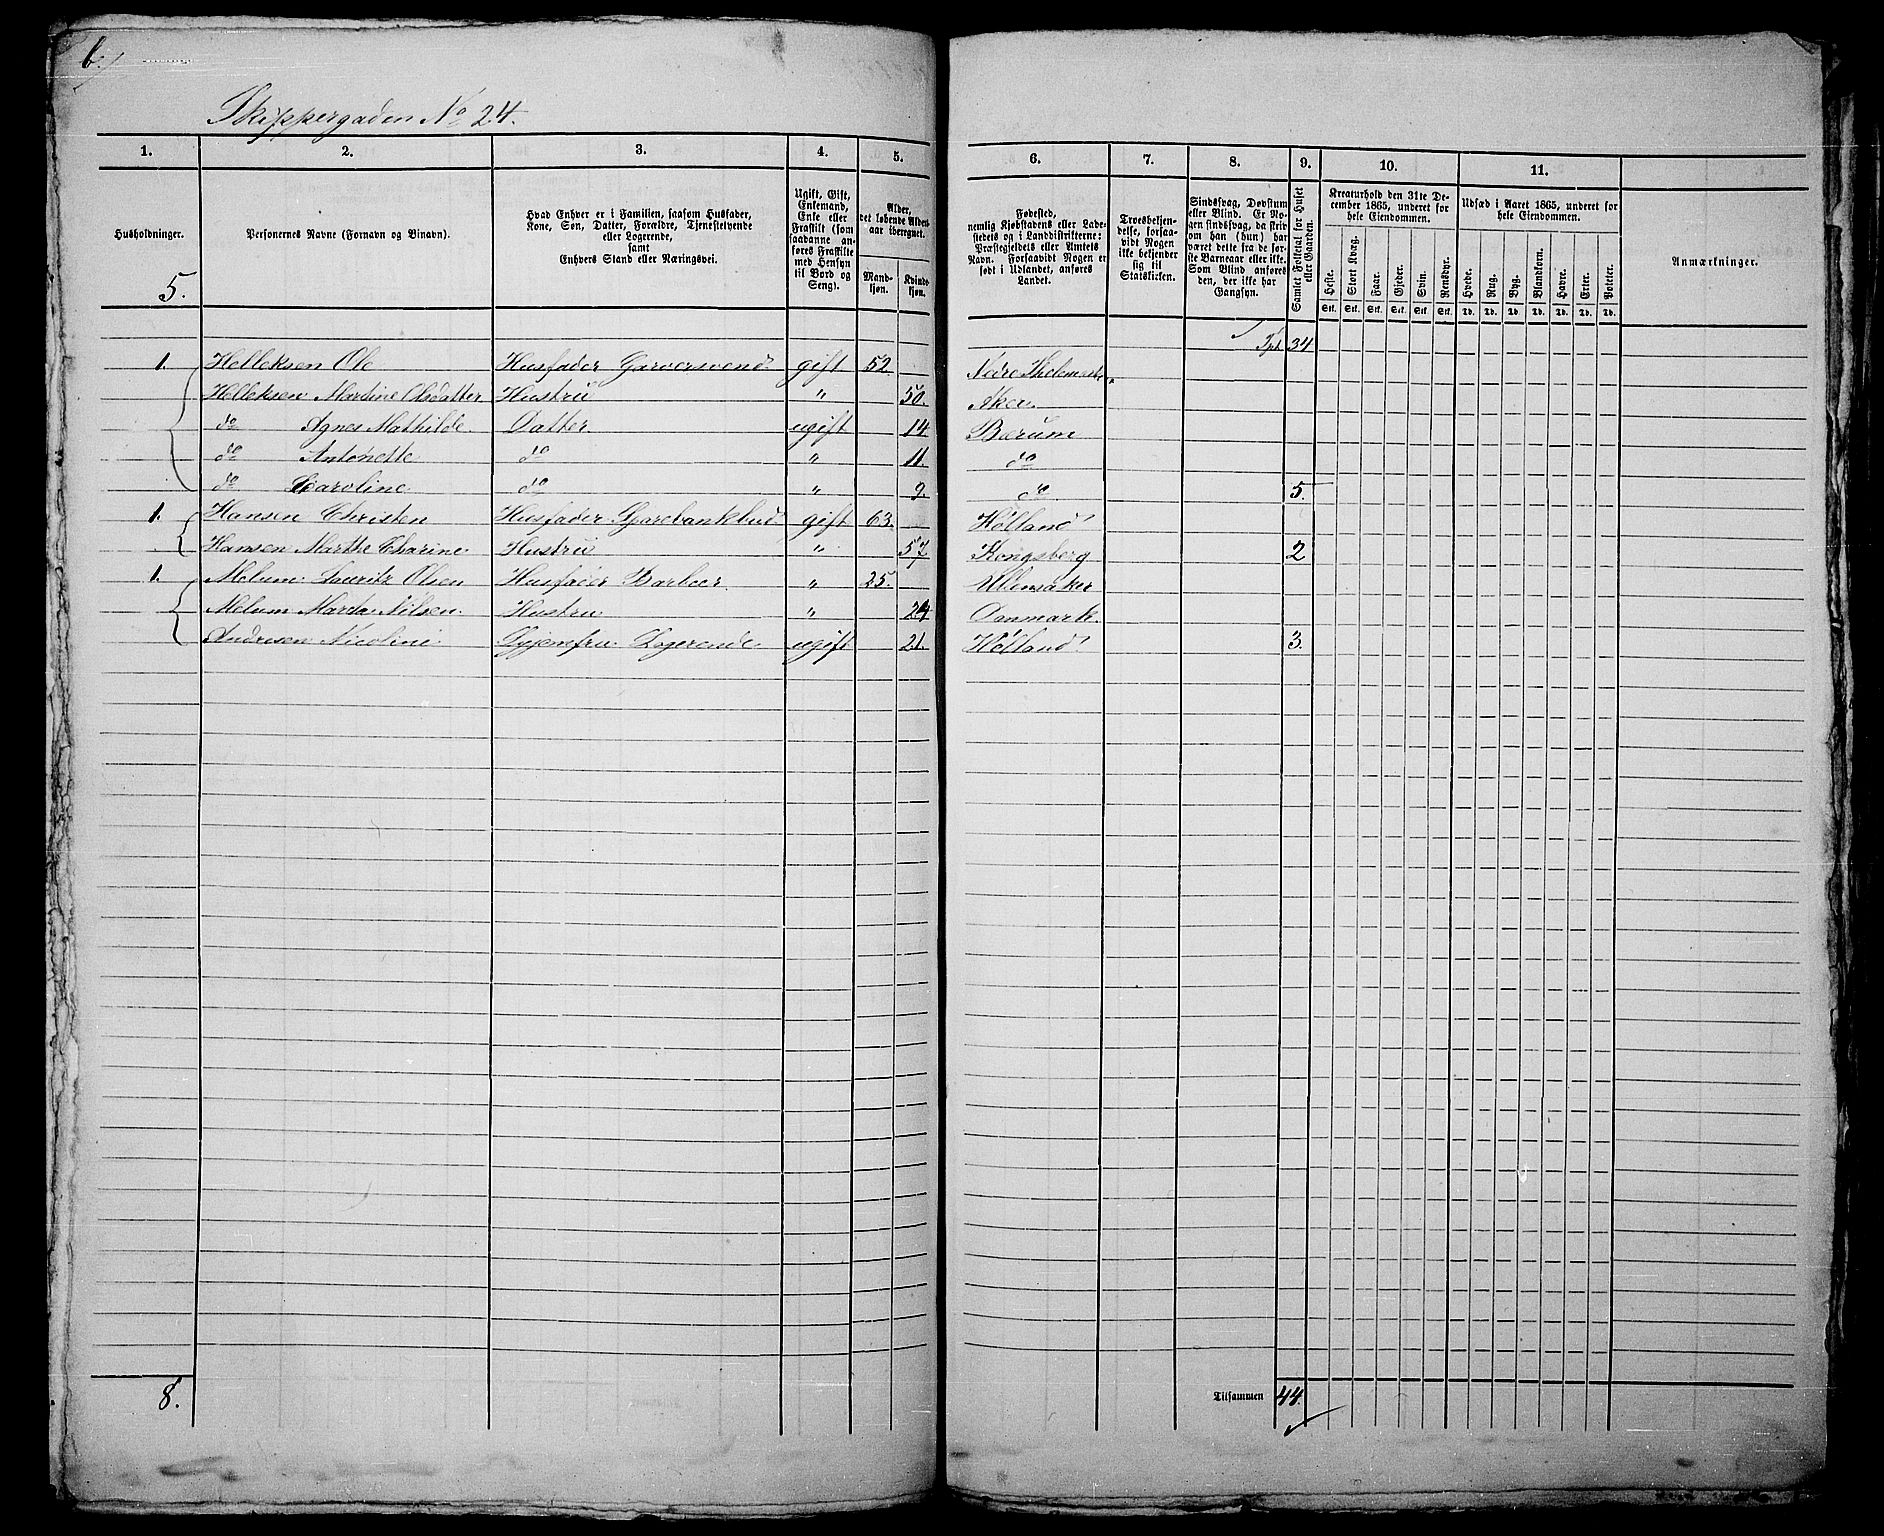 6.
Skippergaden No 24.
1. 2. 3. 4. 5. 6. 7. 8. 9. 10. 11.
Husholdninger.
Personernes Navne (Fornavn og Binavn).
Hvad Enhver er i Familien, saasom Husfader, Kone, Søn, Datter, Forældre, Tjenestetyende eller Logerende, samt Enhvers Stand eller Næringsvei.
Ugift, Gift, Enkemand, Enke eller Fraskilt (som saadanne anføres Fraskilte med Hensyn til Bord og Seng).
Alder, det løbende Alders-aar iberegnet.
Mand-kjøn. Kvinde-kjøn.
Fødested, nemlig Kjøbstadens eller Ladestedets og i Landdistrikterne: Præstegjeldets eller Amtets Navn. Forsaavidt Nogen er født i Udlandet, anføres Landet.
Troesbekjendelse, forsaavidt Nogen ikke bekjender sig til Statskirken.
Sindssvag, Døvstum eller Blind. Er Nogen sindssvag, da skriv om han (hun) har været dette fra de første Barneaar eller ikke. Som Blind anføres den, der ikke har Gangsyn.
Samlet Folketal for Huset eller Gaarden.
Kreaturhold den 31te December 1865, underet for hele Eiendommen.
Heste. Stort Kvæg. Faar. Gjeder. Svin. Rensdyr.
Stk. Stk. Stk. Stk. Stk. Stk.
Udsæd i Aaret 1865, underet for hele Eiendommen.
Hvede. Rug. Byg. Blandkorn. Havre. Erter. Poteter.
Td. Td. Td. Td. Td. Td. Td.
Anmærkninger.
5.
Tpt. 34
1. Helleksen Ole Husfader Garversvend gift 52. Nedre Thelemark.
Helleksen Martine Olsdatter Hustru " 50. Aker.
do Agnes Mathilde Datter ugift 14 Bærum
do Antonette do " 11. do
do Caroline do " 9. do 5.
1. Hansen Christen Husfader Sparebankbud gift 63. Hølland
Hansen Marthe Charine Hustru " 57 Kongsberg 2
1. Melum Lauritz Olsen Husfader Barbeer " 25. Ullensaker
Melum Marda Nilsen. Hustru " 24 Danmark.
Andresen Nicoline Logerende ugift 21. Hølland 3.
8.
Tilsammen 44.